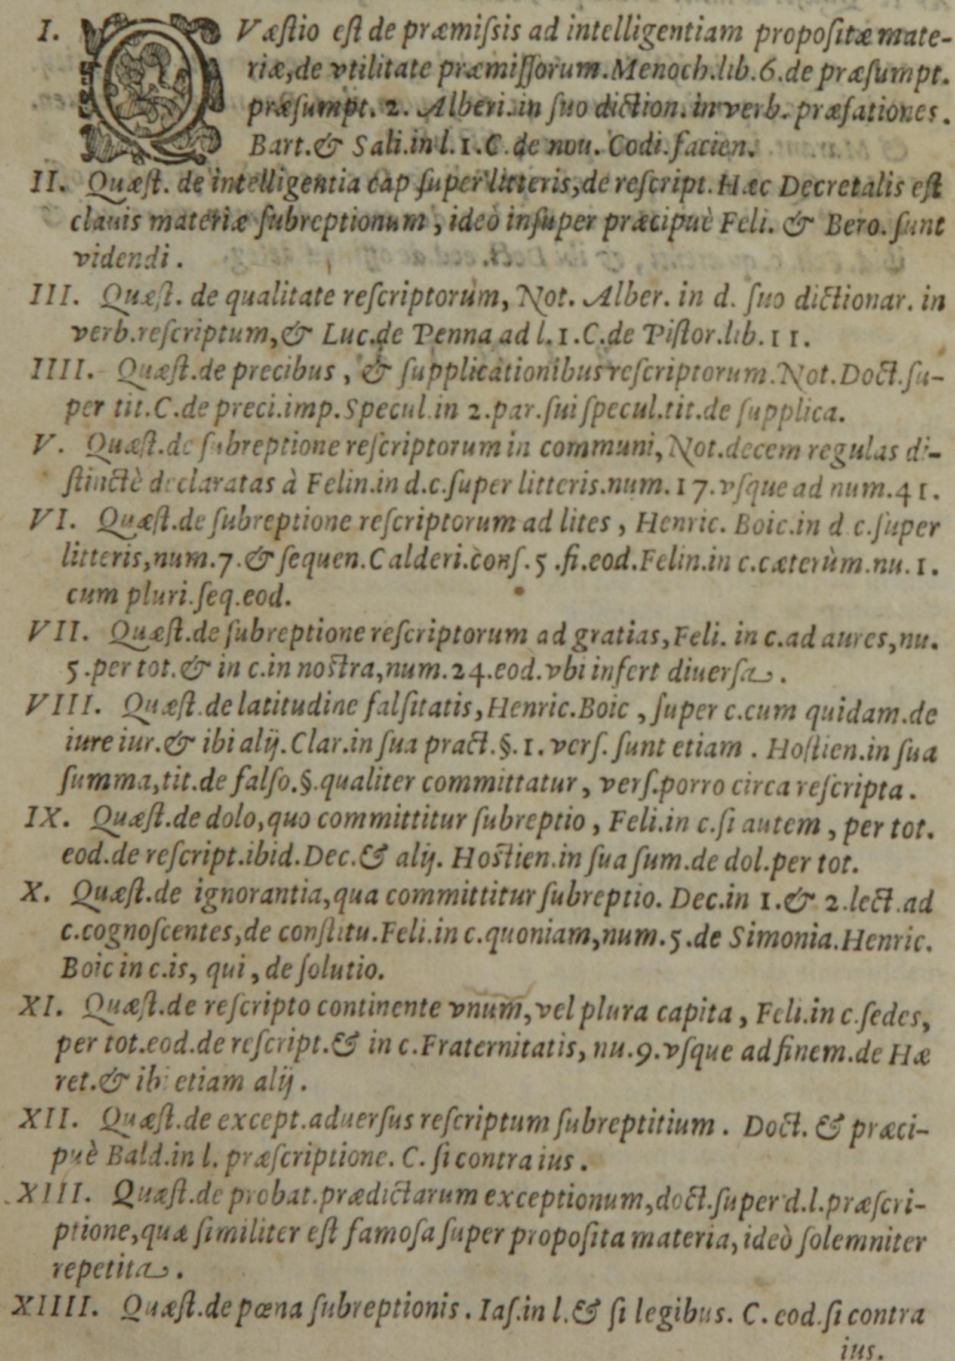 I. QVæſtio eſt de præmiſsis ad intelligentiam propoſitæ mate-
riæ, de vtilitate præmiſſorum. Menoch. lib. 6. de præſumpt.
præſumpt. 2. Alberi. in ſuo diction. in verb. præfationes.
Bart. & Sali. in l. 1. C. de nou. Codi. facien.
II. Quæſt. de intelligentia cap ſuper litteris, de reſcript. Hæc Decretalis eſt
clauis materiæ ſubreptionum, ideò inſuper præcipuè Feli. & Bero. ſunt
videndi.
III. Quæſt. de qualitate reſcriptorum, Not. Alber. in d. ſuo dictionar. in
verb. reſcriptum, & Luc. de Penna ad l. 1. C. de Piſtor. lib. 11.
IIII. Quæſt. de precibus, & ſupplicationibus reſcriptorum. Not. Doct. ſu-
per tit. C. de preci. imp. Specul. in 2. par. ſui ſpecul. tit. de ſupplica.
V. Quæſt. de ſubreptione reſcriptorum in communi, Not. decem regulas di-
ſtinctè declaratas à Felin. in d. c. ſuper litteris. num. 17. vſque ad num. 41.
VI. Quæſt. de ſubreptione reſcriptorum ad lites, Henric. Boic. in d c. ſuper
litteris, num. 7. & ſequen. Calderi. conſ. 5. fi. eod. Felin. in c. cæterùm. nu. 1.
cum pluri. ſeq. eod.
VII. Quæſt. de ſubreptione reſcriptorum ad gratias, Feli. in c. ad aures, nu.
5. per tot. & in c. in noſtra, num. 24. eod. vbi infert diuerſa.
VIII. Quæſt. de latitudine falſitatis, Henric. Boic, ſuper c. cum quidam. de
iure iur. & ibi alij. Clar. in ſua pract. §. 1. verſ. ſunt etiam. Hoſtien. in ſua
ſumma, tit. de falſo. §. qualiter committatur, verſ. porro circa reſcripta.
IX. Quæſt. de dolo, quo committitur ſubreptio, Feli. in c. ſi autem, per tot.
eod. de reſcript. ibid. Dec. & alij. Hoſtien. in ſua ſum. de dol. per tot.
X. Quæſt. de ignorantia, qua committitur ſubreptio. Dec. in 1. & 2. lect. ad
c. cognoſcentes, de conſtitu. Feli. in c. quoniam, num. 5. de Simonia. Henric.
Boic in c. is, qui, de ſolutio.
XI. Quæſt. de reſcripto continente vnum, vel plura capita, Feli. in c. ſedes,
per tot. eod. de reſcript. & in c. Fraternitatis, nu. 9. vſque ad finem. de Hæ
ret. & ibi etiam alij.
XII. Quæſt. de except. aduerſus reſcriptum ſubreptitium. Doct. & præci-
puè Bald. in l. præſcriptione. C. ſi contra ius.
XIII. Quæſt. de probat. prædictarum exceptionum, doct. ſuper d. l. præſcri-
ptione, quæ ſimiliter eſt famoſa ſuper propoſita materia, ideò ſolemniter
repetita.
XIIII. Quæſt. de pœna ſubreptionis. Iaſ. in l. & ſi legibus. C. eod. ſi contra
ius.